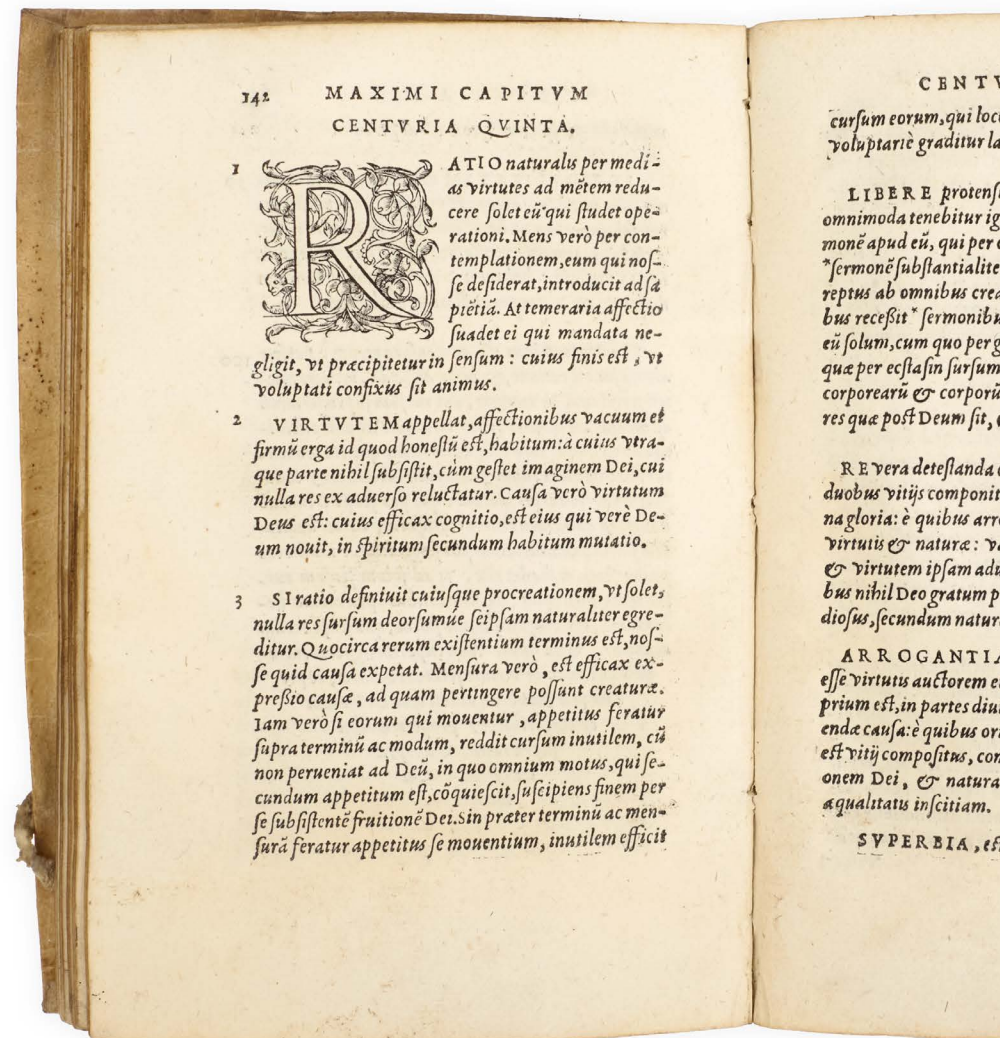 142 MAXIMI CAPITVM
CENTVRIA QVINTA.
1 RATIO naturalis per medi-
as virtutes ad mẽtem redu-
cere ſolet eũ qui ſtudet ope-
rationi. Mens verò per con-
templationem, eum qui noſ-
ſe deſiderat, introducit ad ſa
piẽtiã. At temeraria affectio
ſuadet ei qui mandata ne-
gligit, vt præcipitetur in ſenſum: cuius finis eſt, vt
voluptati confixus ſit animus.
2 VIRTVTEM appellat, affectionibus vacuum et
firmũ erga id quod honeſtũ eſt, habitum: à cuius vtra-
que parte nihil ſubſiſtit, cùm geſtet imaginem Dei, cui
nulla res ex aduerſo reluctatur. Cauſa verò virtutum
Deus eſt: cuius efficax cognitio, eſt eius qui verè De-
um nouit, in ſpiritum ſecundum habitum mutatio.
3 SI ratio definiuit cuiuſque procreationem, vt ſolet,
nulla res ſurſum deorſumúe ſeipſam naturaliter egre-
ditur. Quocirca rerum exiſtentium terminus eſt, noſ-
ſe quid cauſa expetat. Menſura verò, eſt efficax ex-
preßio cauſæ, ad quam pertingere poſſunt creaturæ.
Iam verò ſi eorum qui mouentur, appetitus feratur
ſupra terminũ ac modum, reddit curſum inutilem, cũ
non perueniat ad Deũ, in quo omnium motus, qui ſe-
cundum appetitum eſt, cõquieſcit, ſuſcipiens finem per
ſe ſubſiſtentẽ fruitionẽ Dei. Sin præter terminũ ac men-
ſurã feratur appetitus ſe mouentium, inutilem efficit
CENTV
curſum eorum, qui loc
voluptariè graditur la
LIBERE protenſ
omnimoda tenebitur ig
monẽ apud eũ, qui per
*ſermonẽ ſubſtantialite
reptus ab omnibus crea
bus receßit * ſermonibu
eũ ſolum, cum quo per g
quæ per ecſtaſin ſurſum
corporearũ & corporũ
res quæ poſt Deum ſit,
RE vera deteſtanda
duobus vitijs componit
na gloria: è quibus arr
virtutis & naturæ: va
& virtutem ipſam adu
bus nihil Deo gratum p
dioſus, ſecundum natur
ARROGANTIA
eſſe virtutis auctorem e
prium eſt, in partes diui
endæ cauſa: è quibus or
eſt vitij compoſitus, con
onem Dei, & natura
æqualitatis inſcitiam.
SVPERBIA, eſ